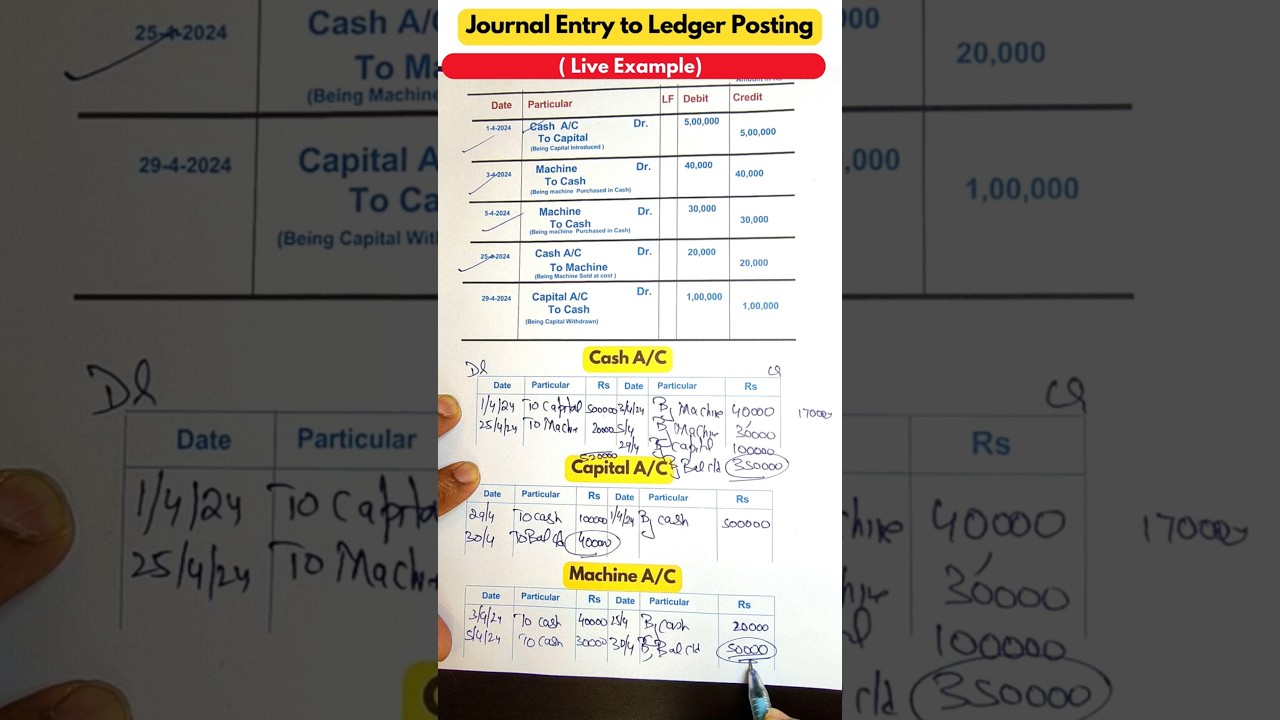 Journal Entry to Ledger Posting
( Live Example)
Date Particular LF Debit Credit
1-4-2024 Cash A/C Dr. 5,00,000
To Capital 5,00,000
(Being Capital Introduced )
3-4-2024 Machine Dr. 40,000
To Cash 40,000
(Being machine Purchased in Cash)
5-4-2024 Machine Dr. 30,000
To Cash 30,000
(Being machine Purchased in Cash)
25-4-2024 Cash A/C Dr. 20,000
To Machine 20,000
(Being Machine Sold at cost )
29-4-2024 Capital A/C Dr. 1,00,000
To Cash 1,00,000
(Being Capital Withdrawn)
Cash A/C
Dr Cr
Date Particular Rs Date Particular Rs
1/4/24 To Capital 500000 3/4/24 By Machine 40000 170000
25/4/24 To Machine 20000 5/4 By Machine 30000
29/4 By capital 100000
520000 By Bal c/d 350000
Capital A/C
Date Particular Rs Date Particular Rs
29/4 To cash 100000 1/4/24 By cash 500000
30/4 To Bal c/d 40000
Machine A/C
Date Particular Rs Date Particular Rs
3/4/24 To cash 40000 25/4 By cash 20000
5/4/24 To cash 30000 30/4 By Bal c/d 50000
25-4-2024 Cash A/C 20,000
To Ma
(Being Machine
29-4-2024 Capital A ,000
To Ca 1,00,000
(Being Capital With
Dr Cr
Date Particular Rs
1/4/24 To Capital 40000 170000
25/4/24 To Machine 30000
100000
c/d 350000